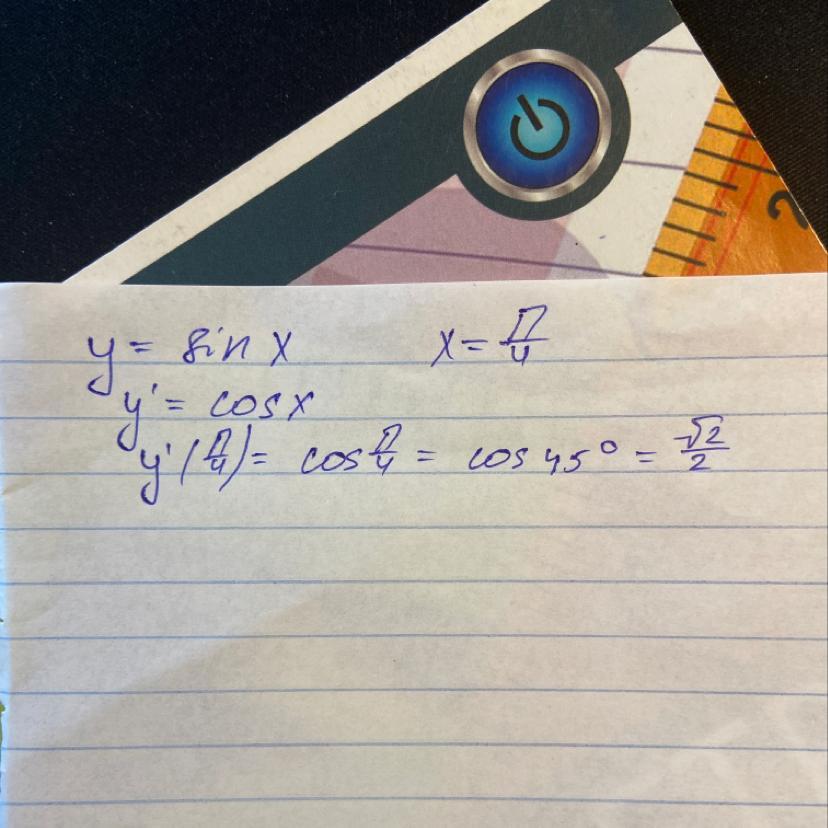 2
y = sin x x = π/4
y' = cos x
y'(π/4) = cos π/4 = cos 45° = √2/2